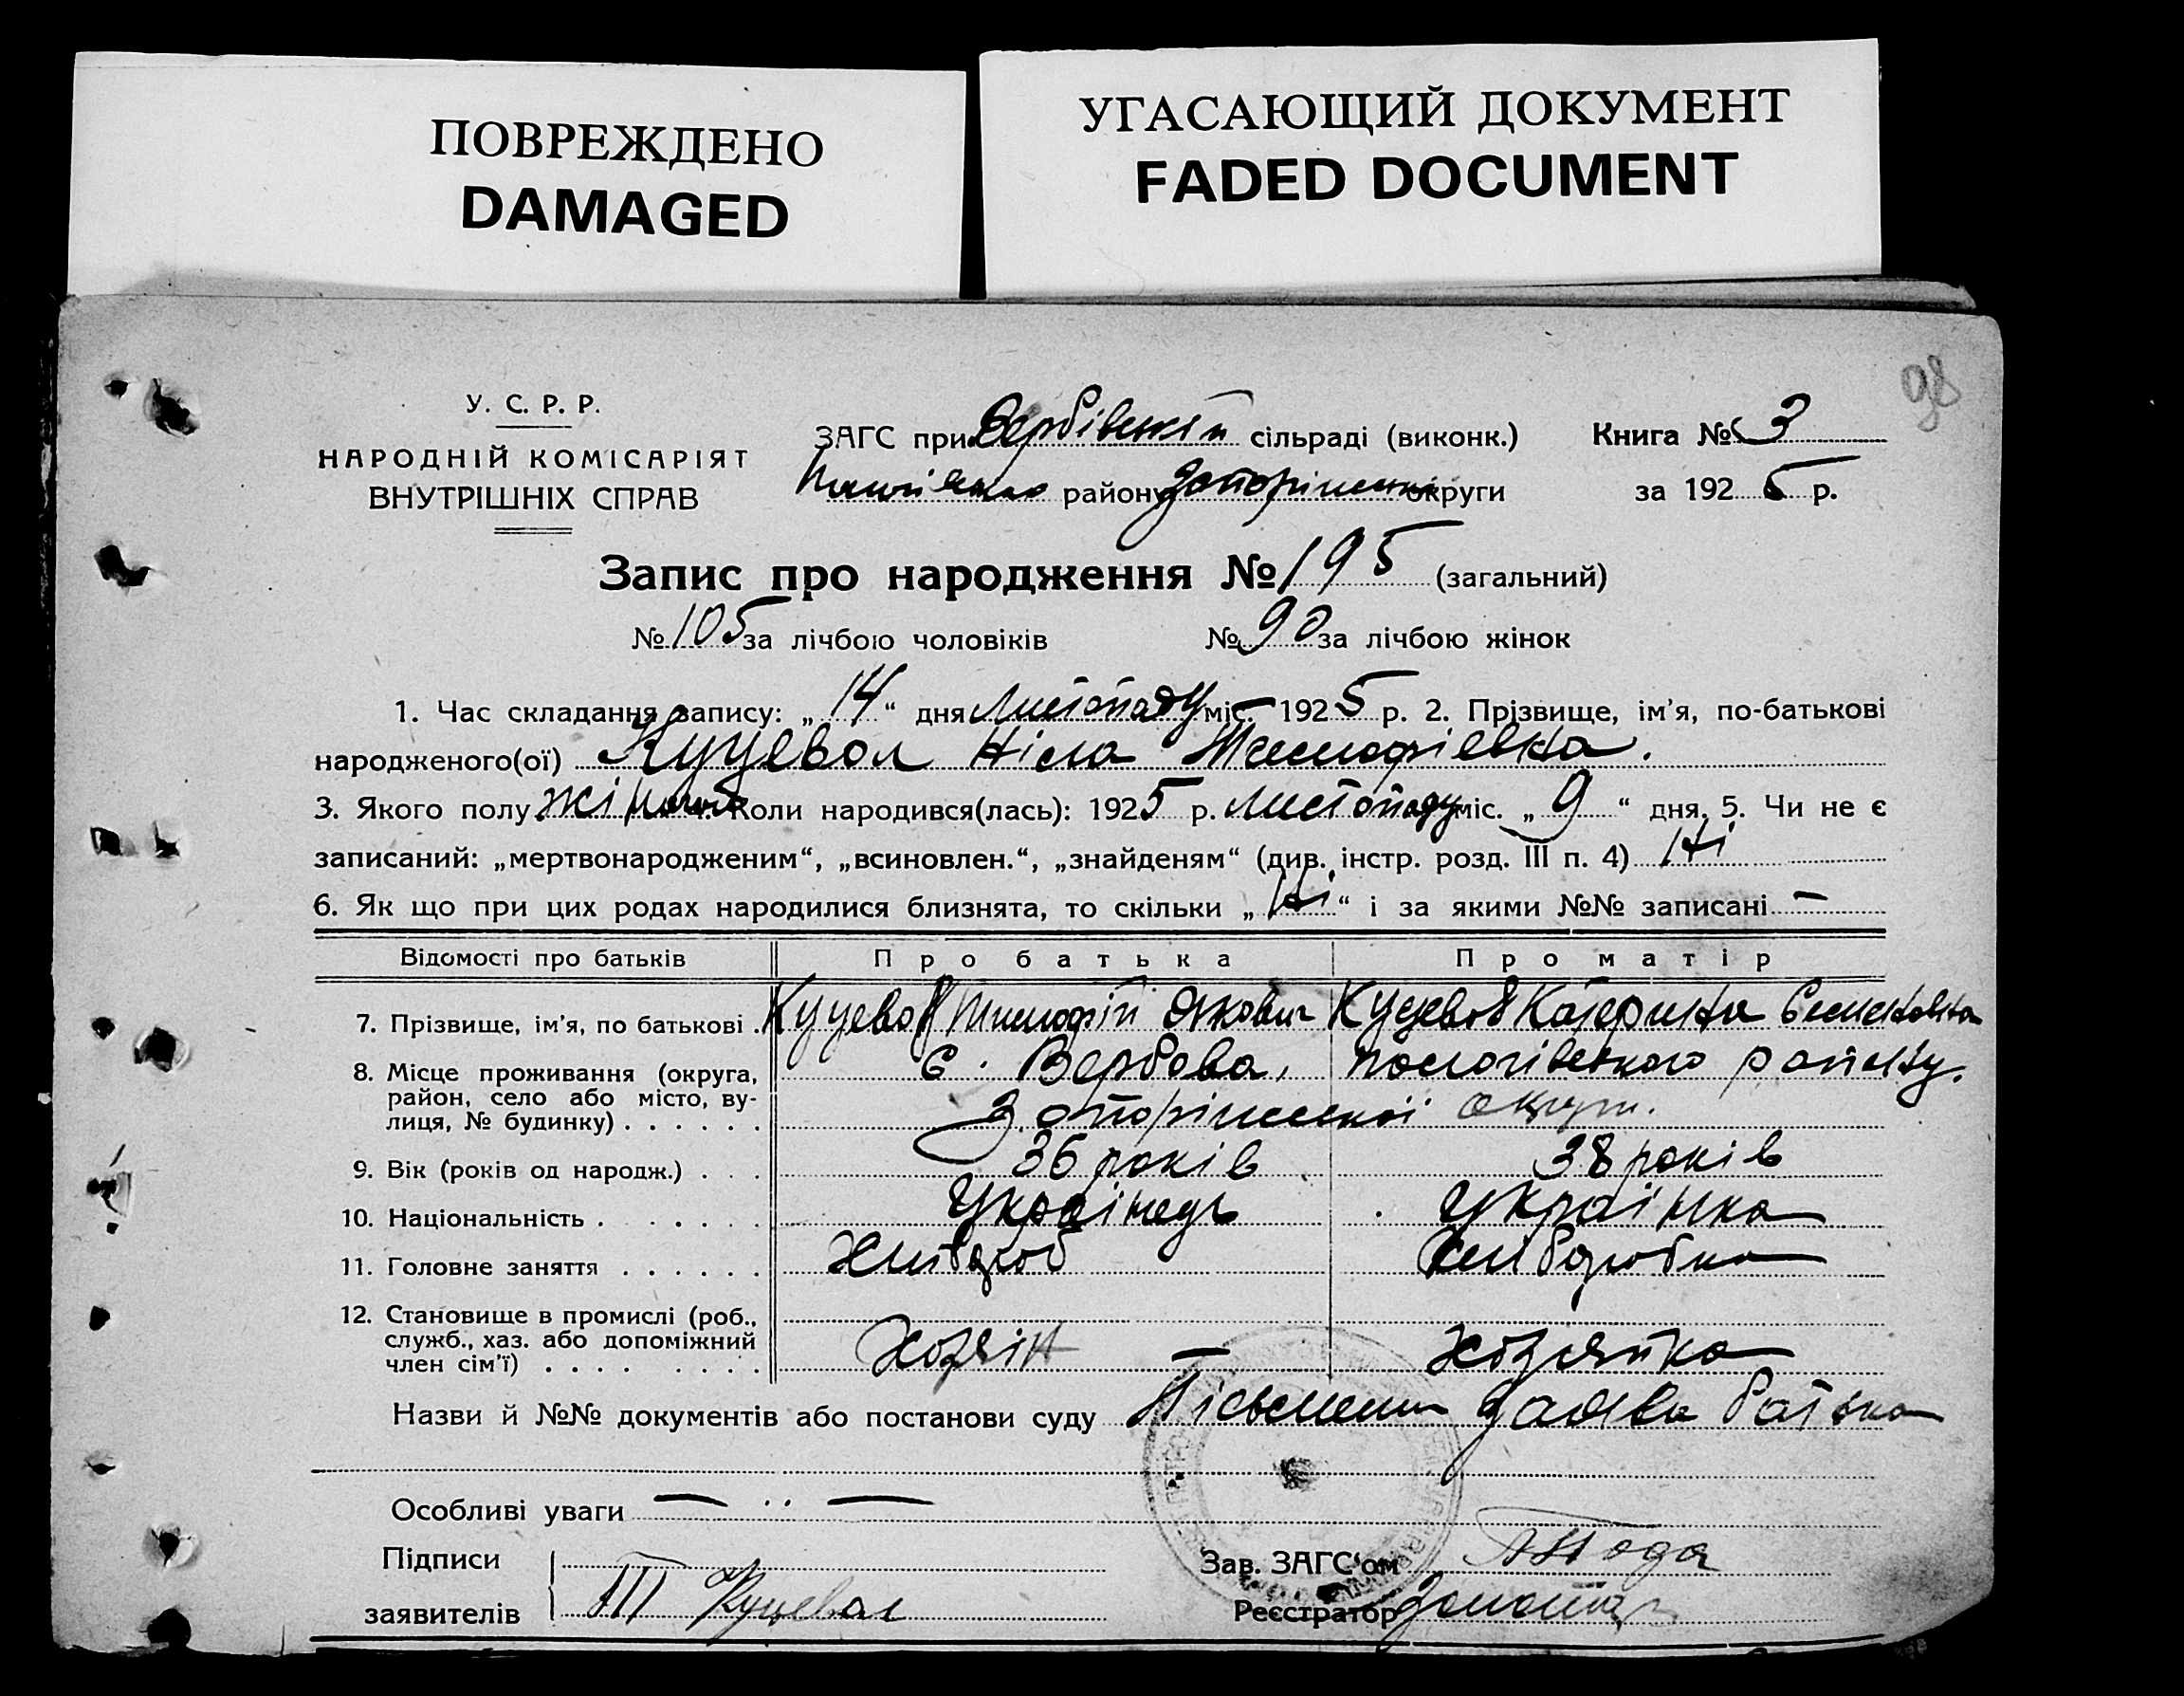 ПОВРЕЖДЕНО
DAMAGED
УГАСАЮЩИЙ ДОКУМЕНТ
FADED DOCUMENT
98
У. С. Р. Р.
НАРОДНІЙ КОМІСАРІЯТ
ВНУТРІШНІХ СПРАВ
ЗАГС при Вербівській сільраді (виконк.)
району Запоріжської округи
Книга № 3
за 1925 р.
Запис про народження № 195 (загальний)
№ 105 за лічбою чоловіків № 90 за лічбою жінок
1. Час складання запису: „14“ дня Листопаду міс. 1925 р. 2. Прізвище, ім'я, по-батькові
народженого(ої) Куцевол Ніла Тимофіевна.
3. Якого полу жіночого 4. Коли народився(лась): 1925 р. Листопаду міс. „9“ дня. 5. Чи не є
записаний: „мертвонародженим“, „всиновлен.“, „знайденям“ (див. інстр. розд. III п. 4) Ні
6. Як що при цих родах народилися близнята, то скільки „Ні“ і за якими №№ записані —
Відомості про батьків Про батька Про матір
7. Прізвище, ім'я, по батькові Куцевол Тимофій Якович Куцевол Катерина Семеновна
8. Місце проживання (округа, район, село або місто, вулиця, № будинку) С. Вербова, Пологівського району.
Запоріжської округи.
9. Вік (років од народж.) 36 років 38 років
10. Національність Українець Українка
11. Головне заняття Хлібороб Хліборобка
12. Становище в промислі (роб., служб., хаз. або допоміжний член сім'ї) Хозяін Хозяйка
Назви й №№ документів або постанови суду Пісьменна заява батька
Особливі уваги — .. —
Підписи
заявителів Т Куцевол
Зав. ЗАГС'ом
Реєстратор